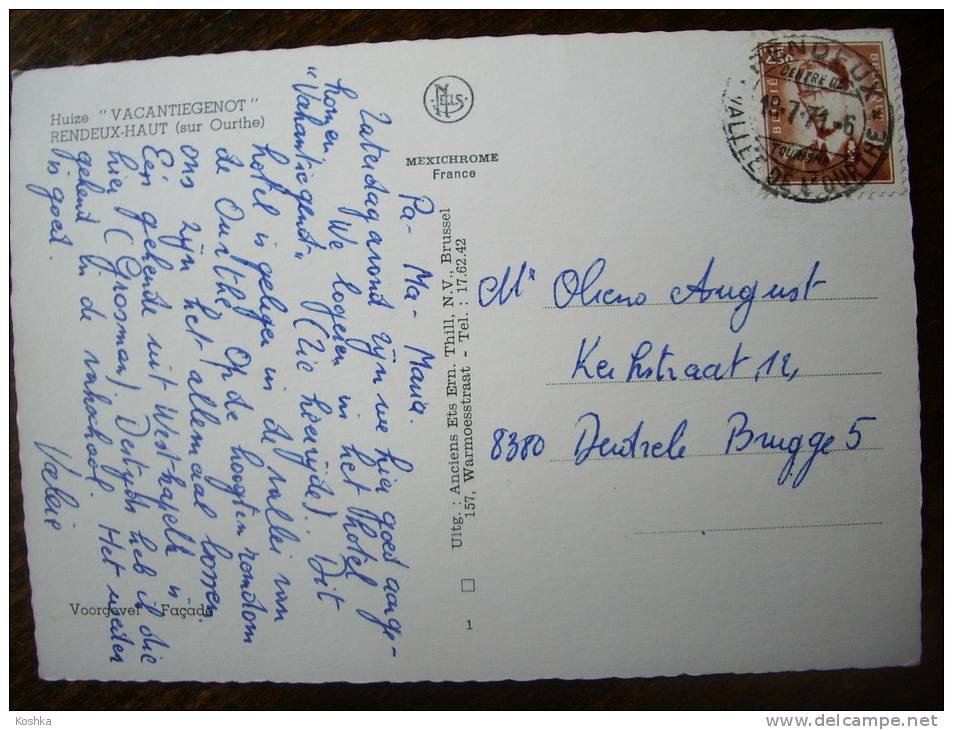 Huize "VACANTIEGENOT"
RENDEUX-HAUT (sur Ourthe)
NELS
MEXICHROME
France
Pa - Ma - Maria.
Zaterdag avond zijn we hier goed aange-
komen. We logeren in het hotel
"Vakantiegenot" (Zie hoerzijde). Dit
hotel is gelegen in de vallei van
de Ourthe. Op de hoogten rondom
ons zijn het allemaal bossen.
Een gehende uit Westkapelle is
hier (Grosman). Destijds heb ik die
gekend in de vakschool. Het weder
is goed.
Voorgevel Façade
Uitg. : Anciens Ets Ern. Thill, N.V., Brussel
157, Warmoesstraat - Tel. : 17.62.42
1
RENDEUX
CENTRE DE
19-7-71-6
TOURISME
VALLEE DE L'OURTHE
2,50
BELGIË
BELGIQUE
Mr August
Kerkstraat, 12,
8380 Brugge 5
Koshka
delcampe.net